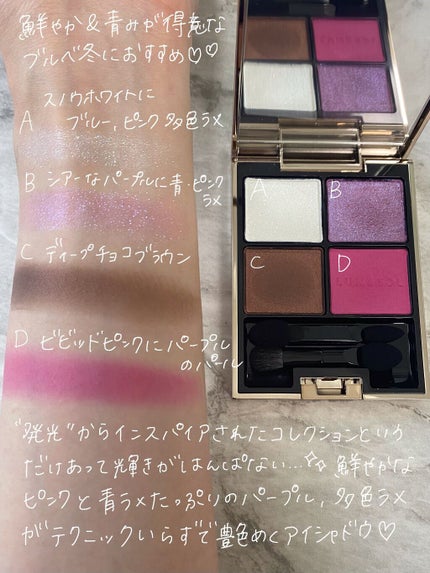 鮮やか&青みが得意な
ブルベ冬におすすめ♡♡
スノウホワイトに
A ブルー、ピンク 多色ラメ
B シアーなパープルに青・ピンク
ラメ
C ディープチョコブラウン
D ビビッドピンクにパープル
のパール
A B
C D
LUNASOL
"発光"からインスパイアされたコレクションという
だけあって輝きがはんぱない...✨ 鮮やかな
ピンクと青ラメたっぷりのパープル、多色ラメ
がテクニックいらずで艶めくアイシャドウ♡